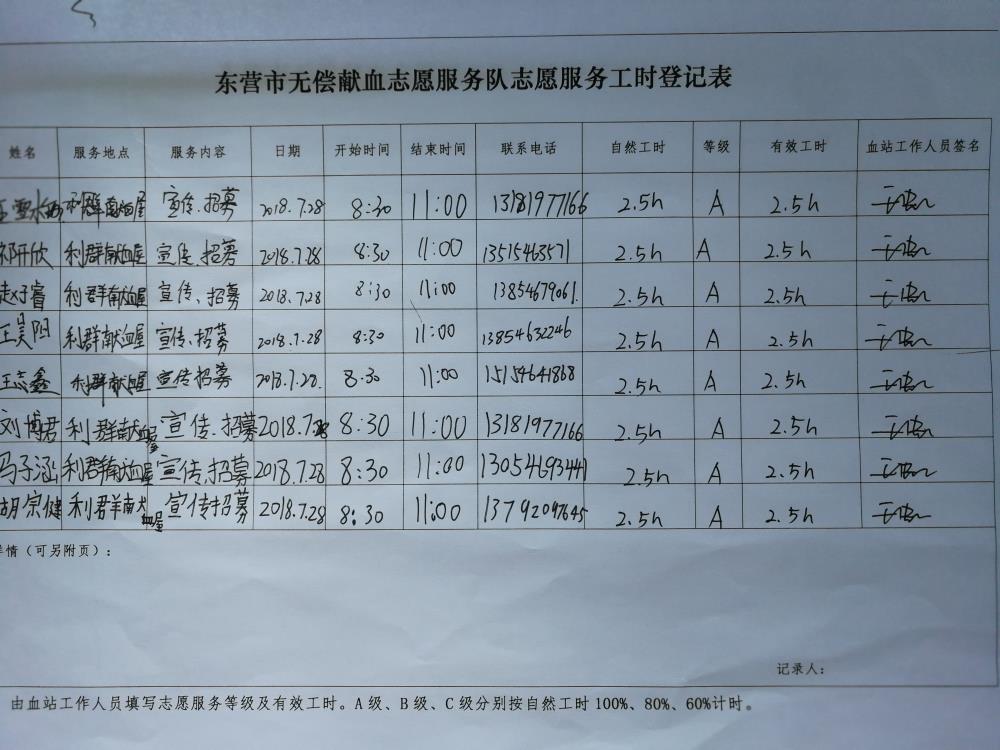 东营市无偿献血志愿服务队志愿服务工时登记表
姓名 服务地点 服务内容 日期 开始时间 结束时间 联系电话 自然工时 等级 有效工时 血站工作人员签名
王雪冰 利群献血屋 宣传、招募 2018.7.28 8:30 11:00 13181977166 2.5h A 2.5h
祁研欣 利群献血屋 宣传、招募 2018.7.28 8:30 11:00 13515463571 2.5h A 2.5h
赵子睿 利群献血屋 宣传、招募 2018.7.28 8:30 11:00 13854679061 2.5h A 2.5h
王昊阳 利群献血屋 宣传、招募 2018.7.28 8:30 11:00 13854632246 2.5h A 2.5h
王志鑫 利群献血屋 宣传招募 2018.7.28. 8:30 11:00 15154641868 2.5h A 2.5h
刘博君 利群献血屋 宣传、招募 2018.7.28 8:30 11:00 13181977166 2.5h A 2.5h
冯子涵 利群献血屋 宣传、招募 2018.7.28 8:30 11:00 13054693441 2.5h A 2.5h
胡宗健 利群献血屋 宣传招募 2018.7.28 8:30 11:00 13792097645 2.5h A 2.5h
情（可另附页）：
记录人：
由血站工作人员填写志愿服务等级及有效工时。A级、B级、C级分别按自然工时100%、80%、60%计时。